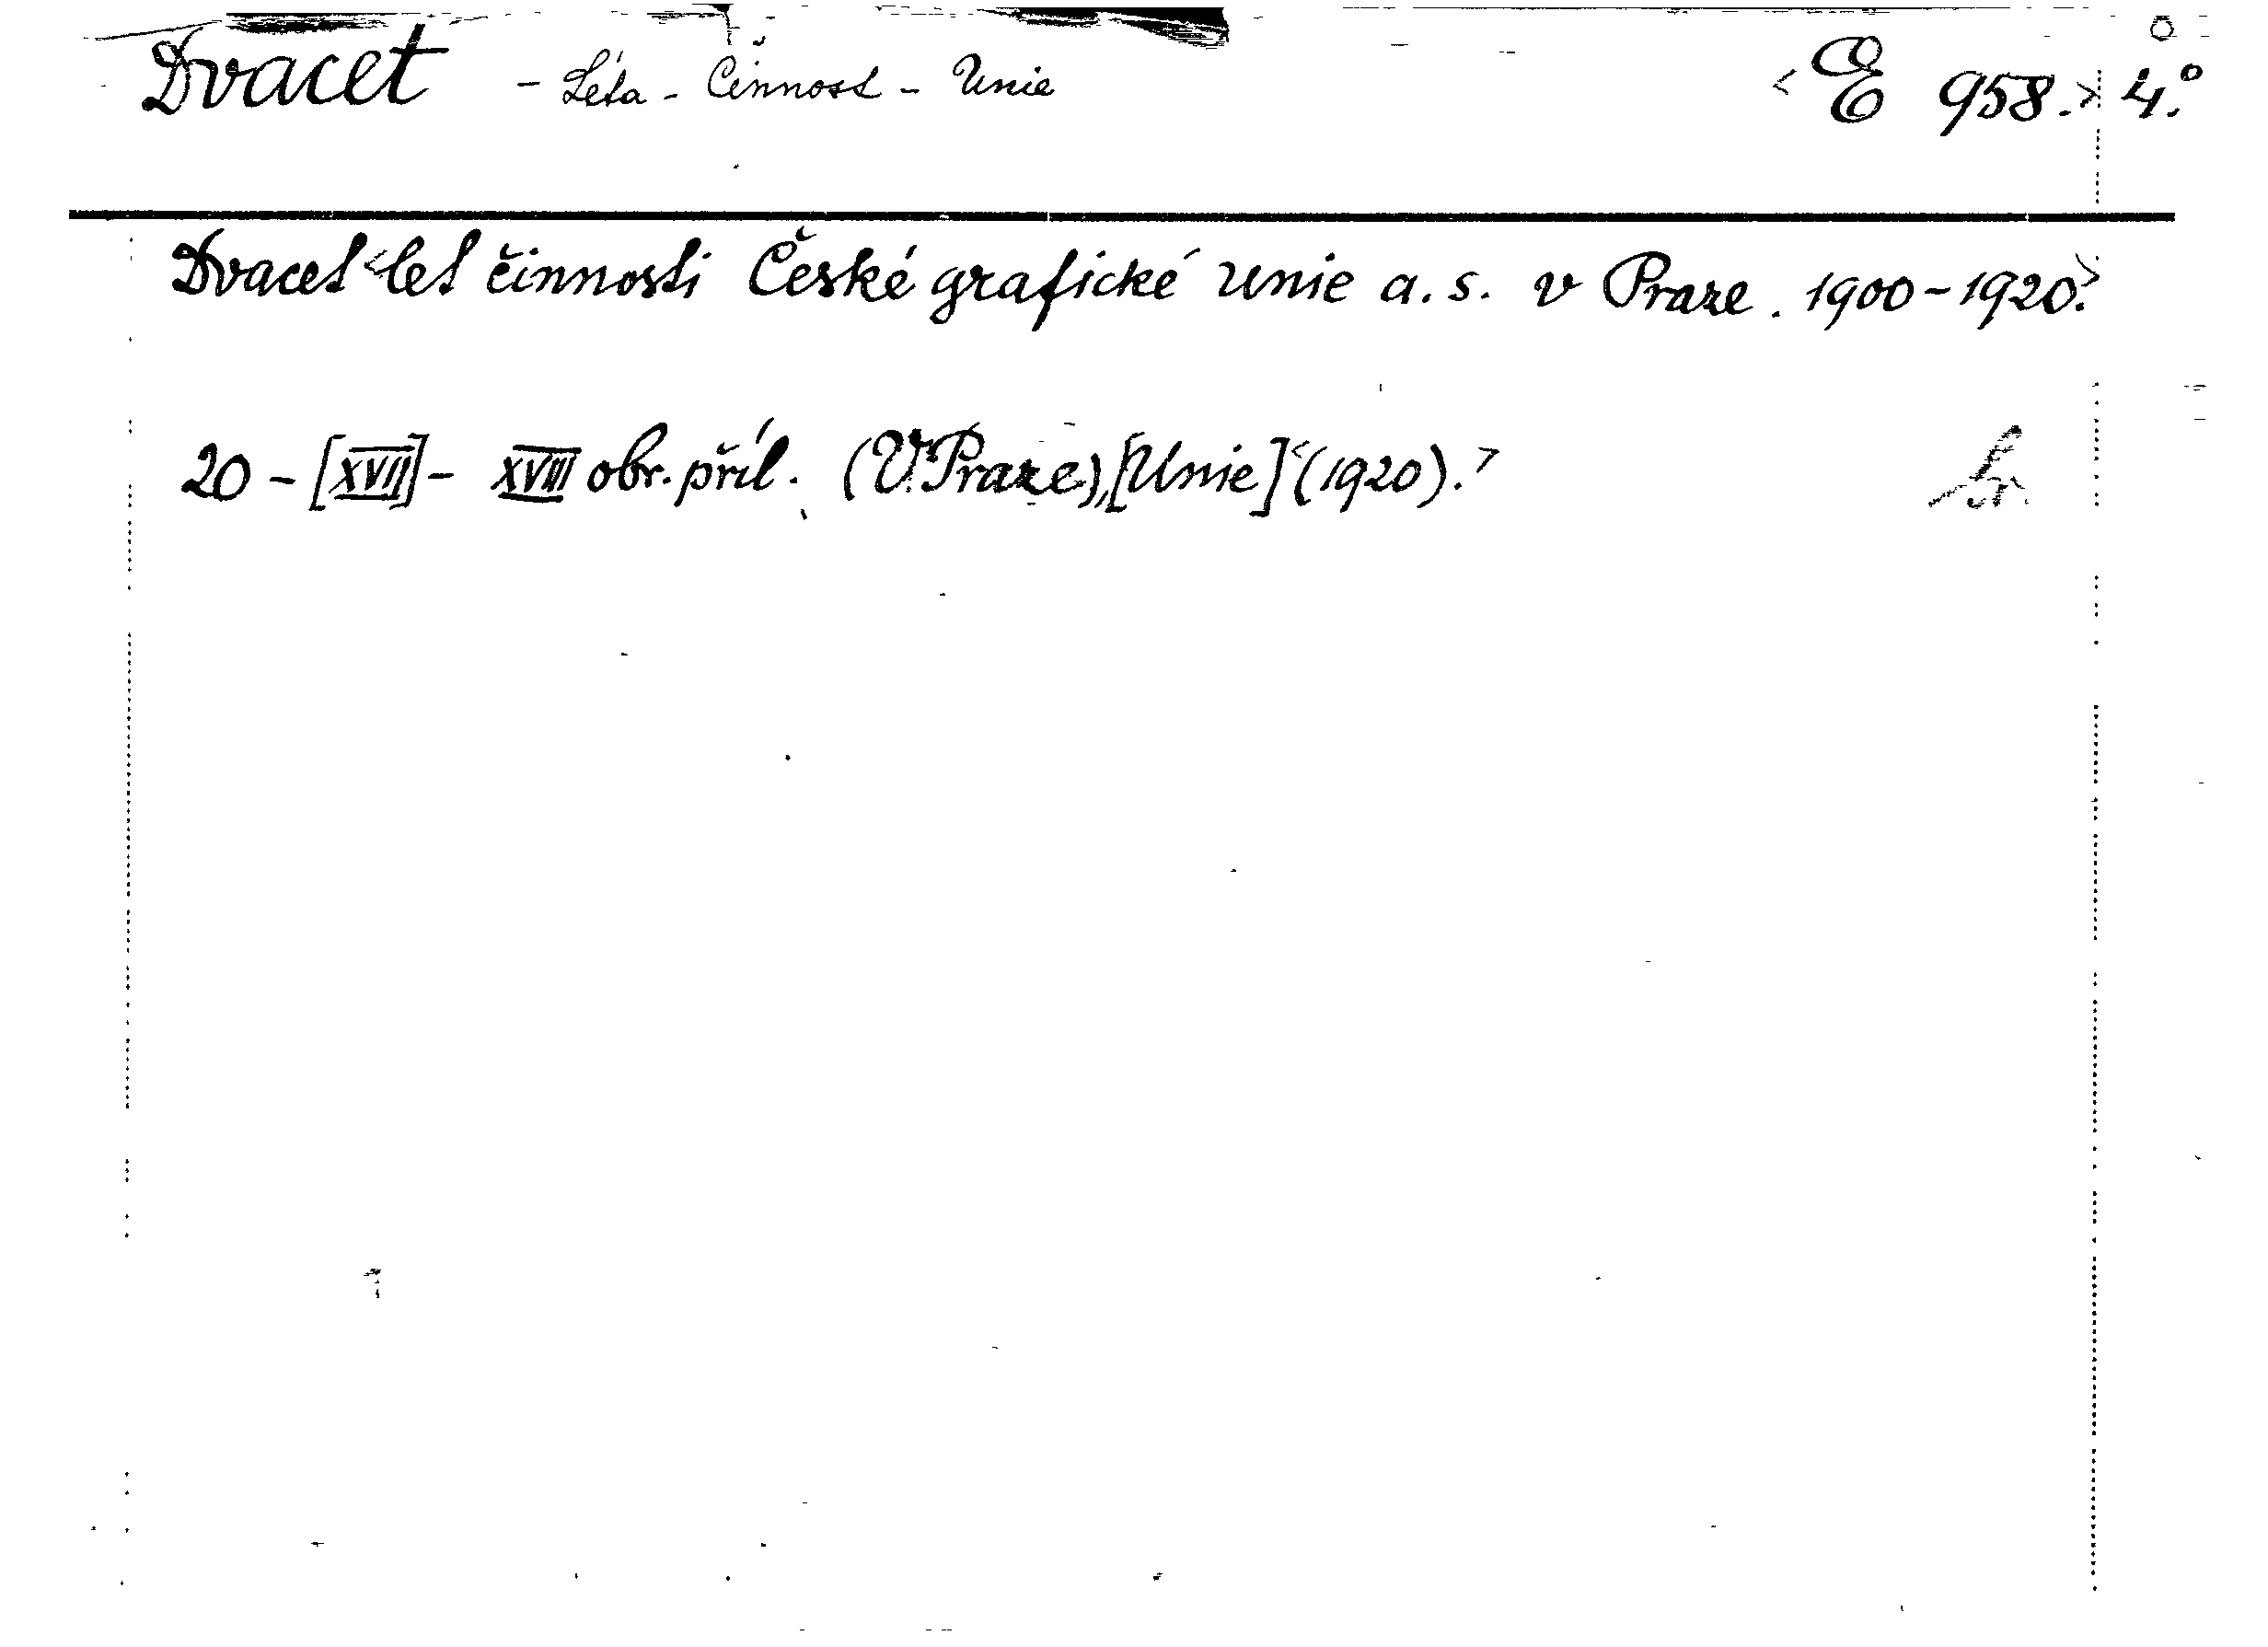 Dvacet - Léta - Činnost - Unie <E 958.> 4.°
Dvacet <let činnosti České grafické unie a. s. v Praze. 1900-1920.>
20 - [XVII] - XVIII obr. příl. (V Praze), [Unie] <(1920).>